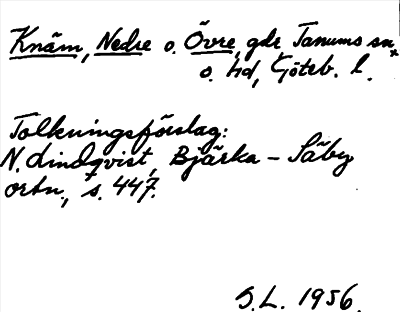 Knäm, Nedre o. Övre, gdr Tanums sn,*
o. hd, Göteb. l.
Tolkningsförslag:
N. Lindqvist, Bjärka - Säby
ortn., s. 447.
S.L. 1956.